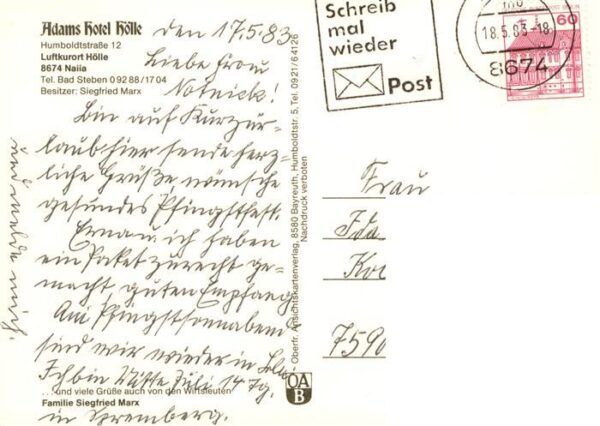 Adams Hotel Hölle
Humboldtstraße 12
Luftkurort Hölle
8674 Naila
Tel. Bad Steben 0 92 88/17 04
Besitzer: Siegfried Marx
den 17.5.83
Liebe Frau
Notnick!
Bin auf Kurzur-
laub hier sende herz-
liche Grüße, wünsche
gesundes Pfingstfest.
Erna u. ich haben
ein Paket zurecht ge-
macht, guten Empfang
Am Pfingstsonnabend
sind wir wieder in
Ich bin Mitte Juli 14 Tg.
in Spremberg.
und melde mich.
... und viele Grüße auch von den Wirtsleuten
Familie Siegfried Marx
Oberfr. Ansichtskartenverlag, 8580 Bayreuth, Humboldtstr. 5, Tel. 0921/64126
Nachdruck verboten
OAB
Schreib
mal
wieder
Post
18.5.83-18
8674
60
Frau
Ida
759